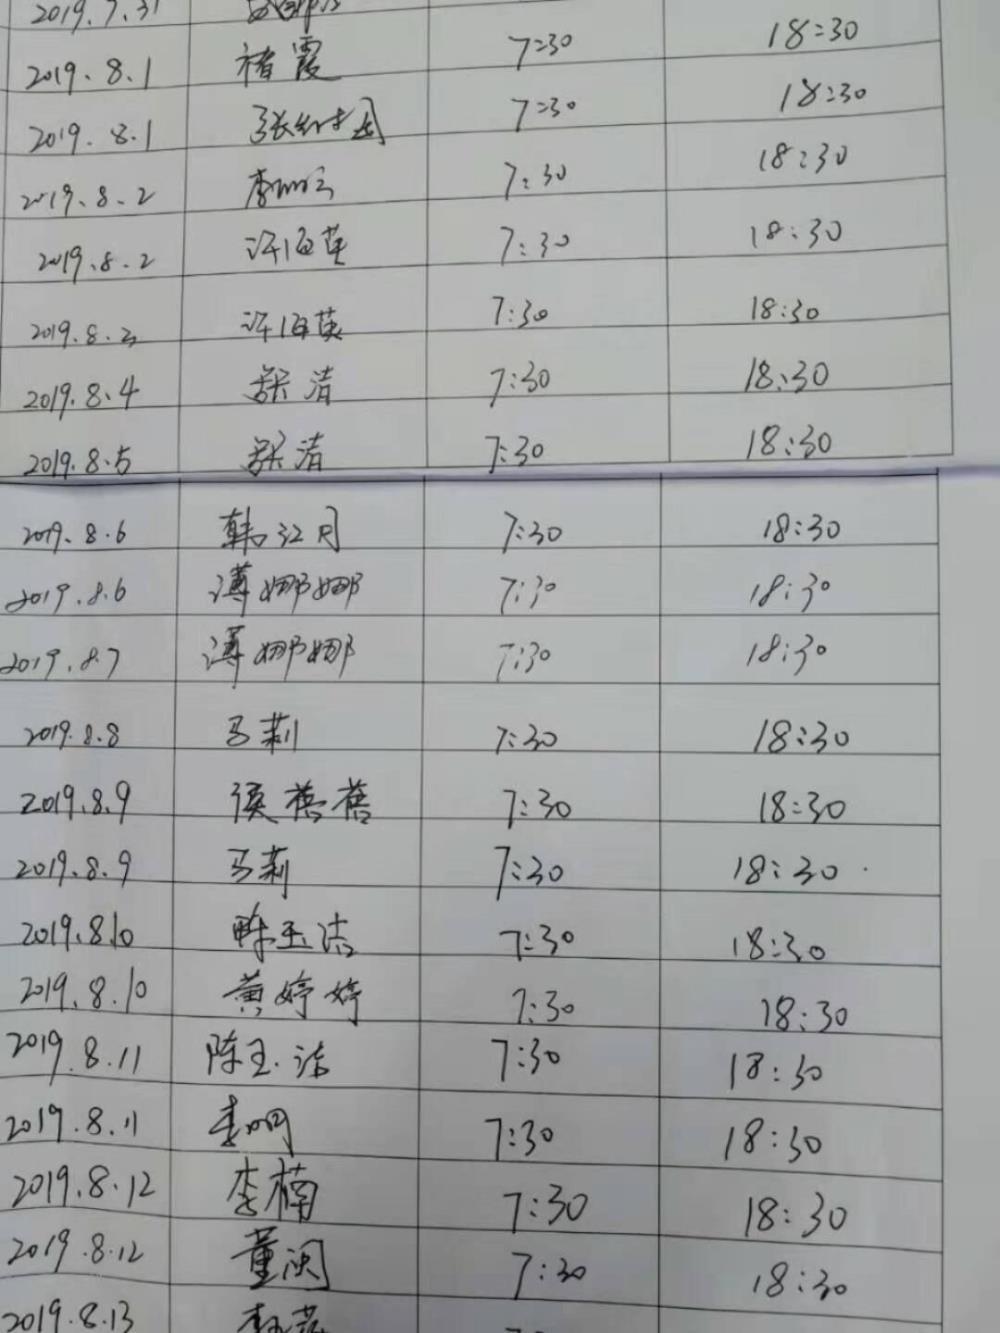 2019.7.31
2019.8.1 褚霞 7:30 18:30
2019.8.1 7:30 18:30
2019.8.2 7:30 18:30
2019.8.2 许海英 7:30 18:30
2019.8.3 许海英 7:30 18:30
2019.8.4 清 7:30 18:30
2019.8.5 清 7:30 18:30
2019.8.6 韩江月 7:30 18:30
2019.8.6 薄娜娜 7:30 18:30
2019.8.7 薄娜娜 7:30 18:30
2019.8.8 马莉 7:30 18:30
2019.8.9 侯蓓蓓 7:30 18:30
2019.8.9 马莉 7:30 18:30
2019.8.10 陈玉洁 7:30 18:30
2019.8.10 黄婷婷 7:30 18:30
2019.8.11 陈玉洁 7:30 18:30
2019.8.11 7:30 18:30
2019.8.12 李楠 7:30 18:30
2019.8.12 董闽 7:30 18:30
2019.8.13